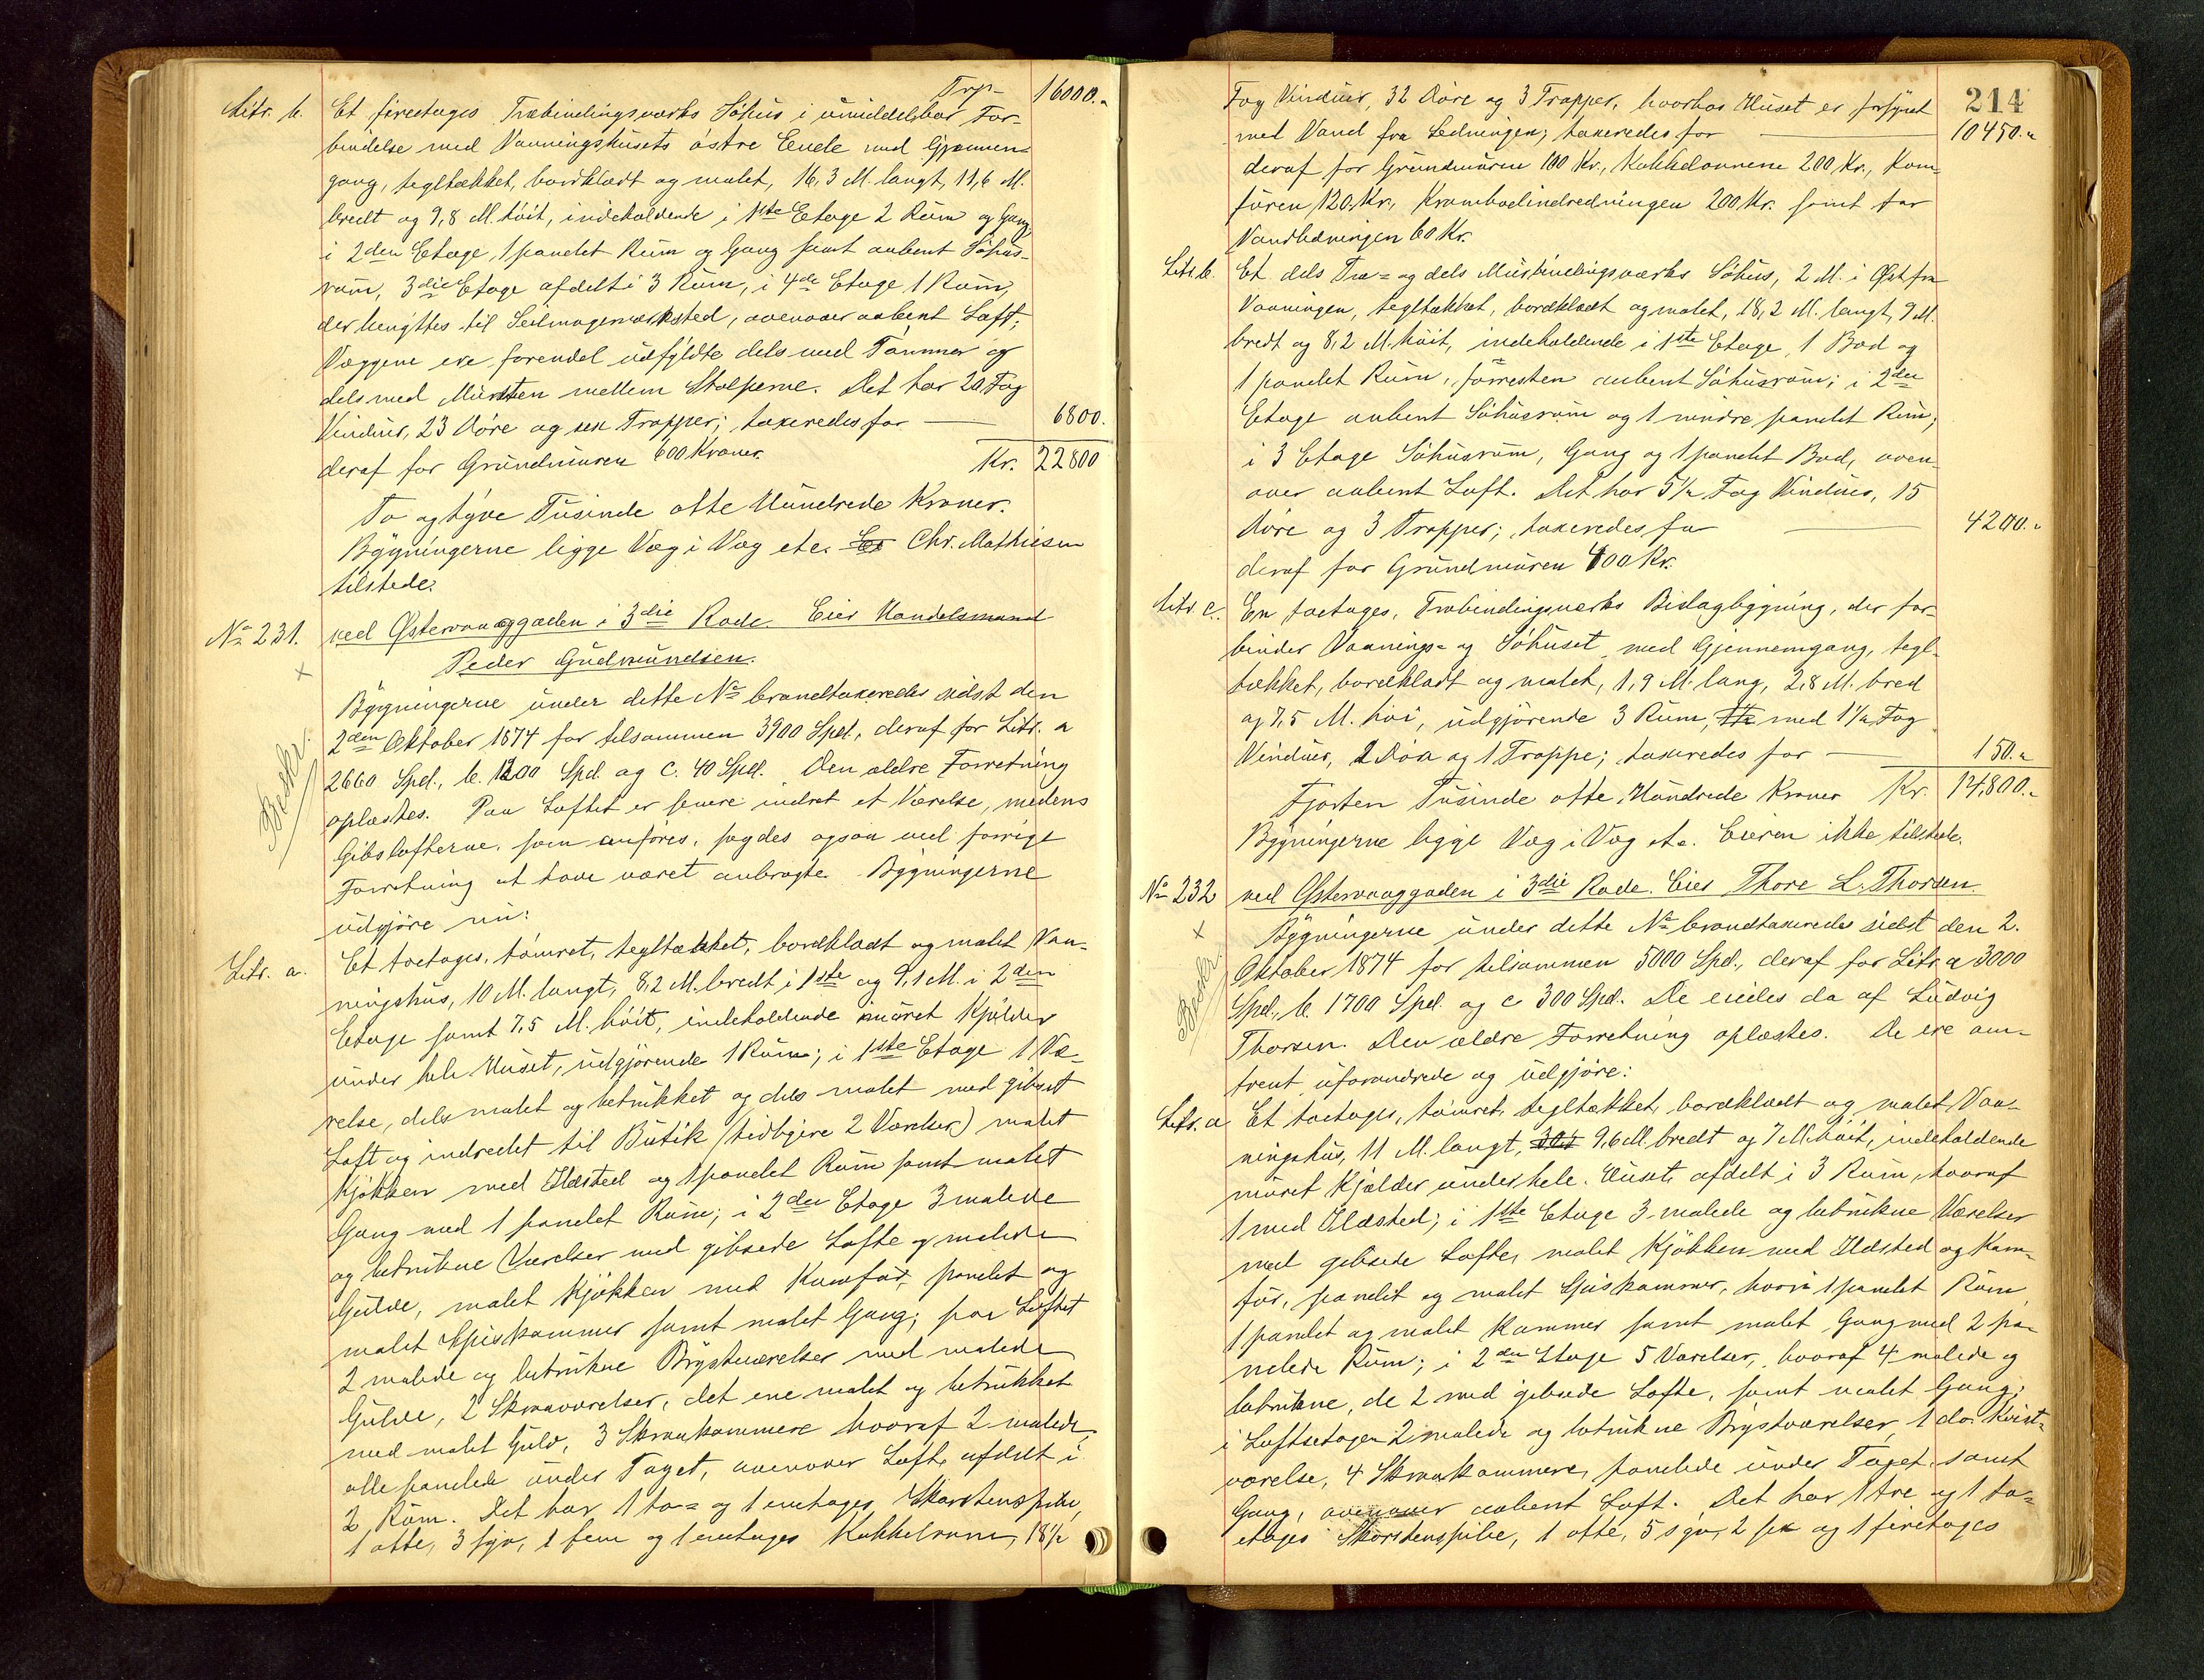 Trp- 16000.-
Litr. b. Et fireetages Træbindingsværks Söhus i umiddelbar For-
bindelse med Vaaningshusets östre Ende med Gjennem-
gang, tegltækket, bordklædt og malet, 16,3 M. langt, 11,6 M.
bredt og 9,8 M. höit, indeholdende i 1ste Etage 2 Rum og Gang,
i 2den Etage, 1 panelet Rum og Gang samt aabent Söhus-
rum, 3die Etage afdelt i 3 Rum, i 4de Etage 1 Rum,
der benyttes til Seilmagerværksted, ovenover aabent Loft;
Væggene ere forendel udfyldte dels med Tömmer og
dels med Mursten mellem Stolperne. Det har 20 Fag
Vinduer, 23 Döre og sex Trapper; taxeredes for 6800.
deraf for Grundmuren 600 Kroner. Kr. 22800
To og tyve Tusinde otte Hundrede Kroner.
Bygningerne ligge Væg i Væg etc. Chr. Mathiesen
tilstede.
No 231. ved Østervaaggaden i 3die Rode. Eier Handelsmand
Peder Gudmundsen.
Bygningerne under dette No brandtaxeredes sidst den
2den Oktober 1874 for tilsammen 3900 Spd., deraf for Litr. a
2660 Spd., b. 1200 Spd. og c. 40 Spd. Den ældre Forretning
oplæstes. Paa Loftet er senere indret et Værelse, medens
Gibslofterne, som anföres, sagdes ogsaa ved forrige
Forretning at have været anbragte. Bygningerne
udgjöre nu:
Litr. a. Et toetages, tömret, tegltækket, bordklædt og malet Vaa-
ningshus, 10 M. langt, 8,2 M. bredt i 1ste og 9,1 M. i 2den
Etage samt 7,5 M. höit, indeholdende muret Kjælder
under hele Huset, udgjörende 1 Rum; i 1ste Etage 1 Væ-
relse, dels malet og betrukket og dels malet med gibset
Loft og indredet til Butik (tidligere 2 Værelser) malet
Kjökken med Ildsted og 1 panelet Rum samt malet
Gang med 1 panelet Rum; i 2den Etage 3 malede
og betrukne Værelser med gibsede Lofte og malede
Gulve, malet Kjökken med Komfur, panelet og
malet Spiskammer samt malet Gang; paa Loftet
2 malede og betrukne Brystværelser med malede
Gulve, 2 Skraaværelser, det ene malet og betrukket
med malet Gulv, 3 Skraakammere hvoraf 2 malede,
alle panelede under Taget, ovenover Loft, afdelt i
2 Rum. Det har 1 to- og 1 enetages Skorstenspibe,
1 otte, 3 syv, 1 fem og 1 enetages Kakkelovne, 18½
Beskr.
214
Fag Vinduer, 32 Döre og 3 Trapper, hvorhos Huset er forsynet
med Vand fra Ledningen; taxeredes for 10450.-
deraf for Grundmuren 100 Kr., Kakkelovnene 200 Kr., Kom-
furen 120 Kr., Krambodindredningen 200 Kr. samt for
Vandledningen 60 Kr.
Litr. b. Et dels Træ- og dels Murbindingsværks Söhus, 2 M. i Øst fra
Vaaningen, tegltækket, bordklædt og malet, 18,2 M. langt, 9 M.
bredt og 8,2 M. höit, indeholdende i 1ste Etage, 1 Bod og
1 panelet Rum, forresten aabent Söhusrum; i 2den
Etage aabent Söhusrum og 1 mindre panelet Rum,
i 3 Etage Söhusrum, Gang og 1 panelet Bod, oven-
over aabent Loft. Det har 5½ Fag Vinduer, 15
Döre og 3 Trapper; taxeredes for 4200.-
deraf for Grundmuren 400 Kr.
Litr. c. En toetages, Træbindingsværks Bislagbygning, der for-
binder Vaanings- og Söhuset med Gjennemgang, tegl-
tækket, bordklædt og malet, 1,9 M. lang, 2,8 M. bred
og 7,5 M. höi, udgjörende 3 Rum, med 1½ Fag
Vinduer, 2 Döre og 1 Trappe; taxeredes for 150.-
Fjorten Tusinde otte Hundrede Kroner Kr. 14,800.-
Bygningerne ligge Væg i Væg etc. Eieren ikke tilstede.
No 232 ved Østervaaggaden i 3die Rode. Eier Thore L. Thorsen
Bygningerne under dette No brandtaxeredes sidst den 2.
Oktober 1874 for tilsammen 5000 Spd., deraf for Litr. a 3000
Spd., b. 1700 Spd. og c 300 Spd. De eiedes da af Ludvig
Thorsen. Den ældre Forretning oplæstes. De ere om-
trent uforandrede og udgjöre:
Beskr.
Litr. a Et toetages, tömret, tegltækket, bordklædt og malet Vaa-
ningshus, 11 M. langt, 9,6 M. bredt og 7 M. höit, indeholdende
muret Kjælder under hele Huset, afdelt i 3 Rum, hvoraf
1 med Ildsted; i 1ste Etage 3 malede og betrukne Værelser
med gibsede Lofte, malet Kjökken med Ildsted og Kom-
fur, panelet og malet Spiskammer, hvori 1 panelet Rum
1 panelet og malet Kammer samt malet Gang med 2 pa-
nelede Rum; i 2den Etage 5 Værelser, hvoraf 4 malede og
betrukne, de 2 med gibsede Lofte, samt malet Gang;
i Loftsetagen 2 malede og betrukne Brystværelser, 1 do. Kvist-
værelse, 4 Skraakammere, panelede under Taget samt
Gang, ovenover aabent Loft. Det har 1 tre og 1 to-
etages Skorstenspibe, 1 otte, 5 syv, 2 sex og 1 firetages